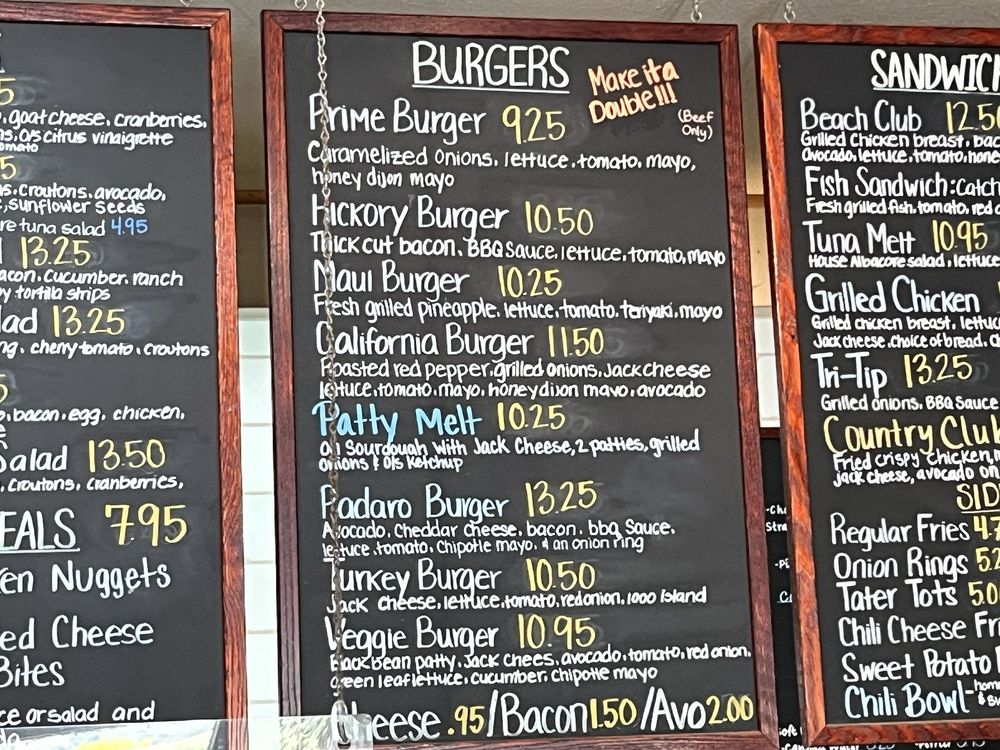 5
goat cheese, cranberries,
o/s citrus vinaigrette
tomato
5
croutons, avocado,
sunflower seeds
tuna salad 4.95
13.25
bacon, cucumber, ranch
tortilla strips
lad 13.25
cherry tomato, croutons
5
bacon, egg, chicken,
Salad 13.50
croutons, cranberries,
EALS 7.95
en Nuggets
ed Cheese
Bites
ce or salad and
BURGERS
Make it a
Double!!!
(Beef
Only)
Prime Burger 9.25
Caramelized onions, lettuce, tomato, mayo,
honey dijon mayo
Hickory Burger 10.50
Thick cut bacon, BBQ Sauce, lettuce, tomato, mayo
Maui Burger 10.25
Fresh grilled pineapple, lettuce, tomato, teriyaki, mayo
California Burger 11.50
Roasted red pepper, grilled onions, Jack cheese
lettuce, tomato, mayo, honey dijon mayo, avocado
Patty Melt 10.25
On Sourdough with Jack Cheese, 2 patties, grilled
onions & o/s Ketchup
Padaro Burger 13.25
Avocado, Cheddar cheese, bacon, bbq Sauce,
lettuce, tomato, Chipotle mayo, & an onion ring
Turkey Burger 10.50
Jack cheese, lettuce, tomato, red onion, 1000 Island
Veggie Burger 10.95
Black bean patty, Jack chees, avocado, tomato, red onion,
green leaf lettuce, cucumber, chipotle mayo
Cheese .95/Bacon 1.50/Avo 2.00
SANDWIC
Beach Club 12.50
Grilled Chicken breast, bac
Avocado, lettuce, tomato, hone
Fish Sandwich: Catch
Fresh grilled fish, tomato, red
Tuna Melt 10.95
House Albacore salad, lettuce
Grilled Chicken
Grilled chicken breast, lettuc
Jack cheese, choice of bread,
Tri-Tip 13.25
Grilled onions, BBQ Sauce
Country Club
Fried crispy chicken,
Jack cheese, avocado on
SID
Regular Fries 4.7
Onion Rings 5.2
Tater Tots 5.0
Chili Cheese Fri
Sweet Potato
Chili Bowl - hom